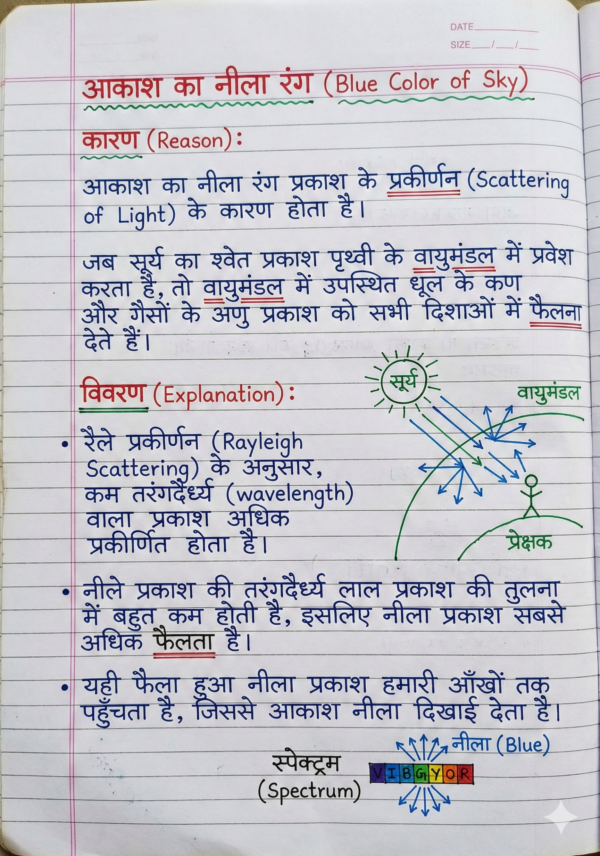 DATE
SIZE / / /
आकाश का नीला रंग (Blue Color of Sky)
कारण (Reason):
आकाश का नीला रंग प्रकाश के प्रकीर्णन (Scattering
of Light) के कारण होता है।
जब सूर्य का श्वेत प्रकाश पृथ्वी के वायुमंडल में प्रवेश
करता है, तो वायुमंडल में उपस्थित धूल के कण
और गैसों के अणु प्रकाश को सभी दिशाओं में फैलना
देते हैं।
विवरण (Explanation):
सूर्य
वायुमंडल
• रैले प्रकीर्णन (Rayleigh
Scattering) के अनुसार,
कम तरंगदैर्ध्य (wavelength)
वाला प्रकाश अधिक
प्रकीर्णित होता है।
प्रेक्षक
• नीले प्रकाश की तरंगदैर्ध्य लाल प्रकाश की तुलना
में बहुत कम होती है, इसलिए नीला प्रकाश सबसे
अधिक फैलता है।
• यही फैला हुआ नीला प्रकाश हमारी आँखों तक
पहुँचता है, जिससे आकाश नीला दिखाई देता है।
नीला (Blue)
स्पेक्ट्रम
(Spectrum)
V I B G Y O R